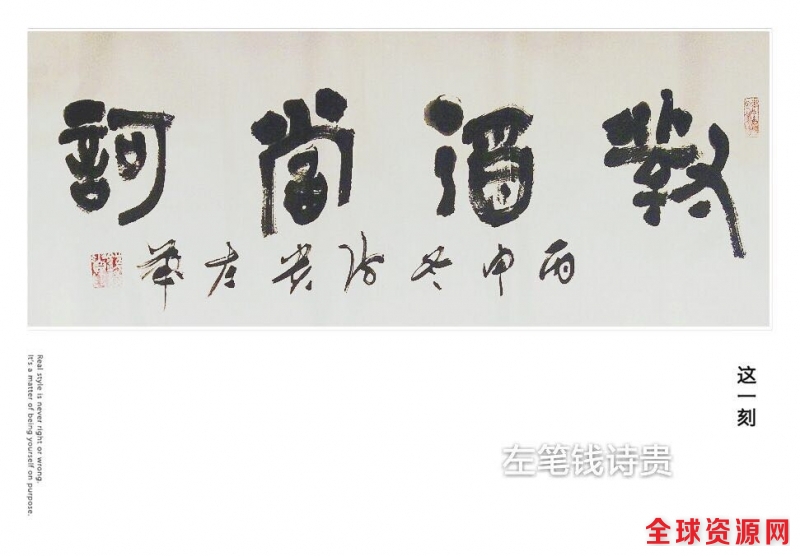 對酒當訶
丙申冬诗贵左笔
这一刻
Real style is never right or wrong.
It's a matter of being yourself on purpose.
左笔钱诗贵
全球资源网